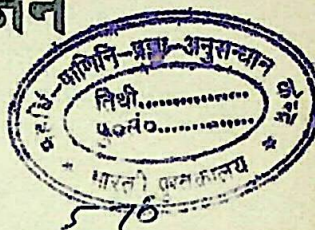 महर्षि-पाणिनि-प्रज्ञा-अनुसन्धान
तिथी..............
पु०सं०..............
* भारती पुस्तकालय *
576